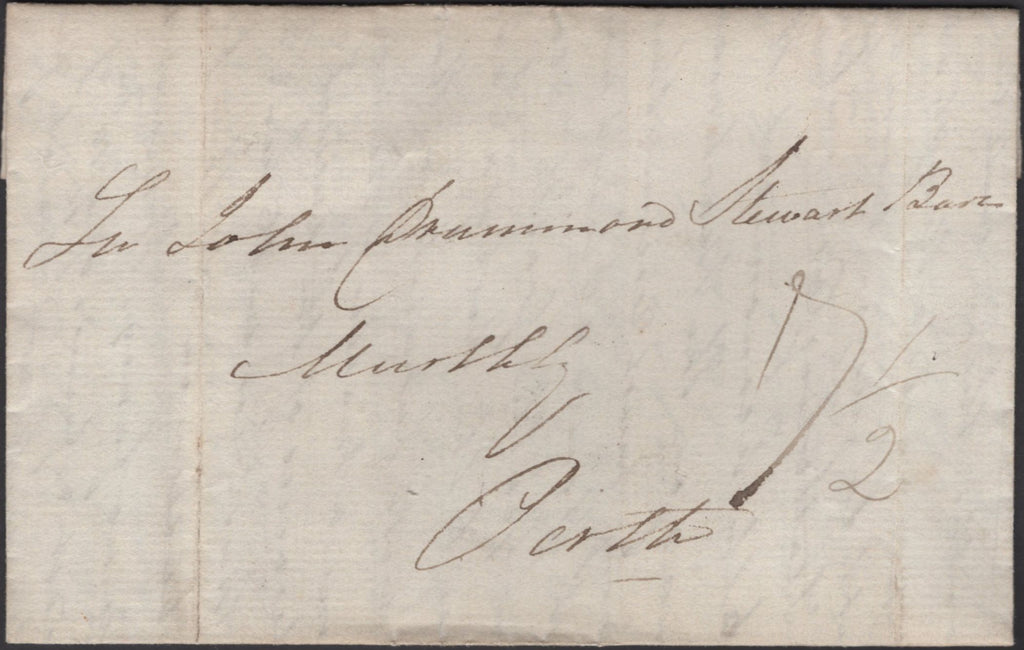 Sir John Drummond Stewart Bart
Murthly
Perth
7 1/2